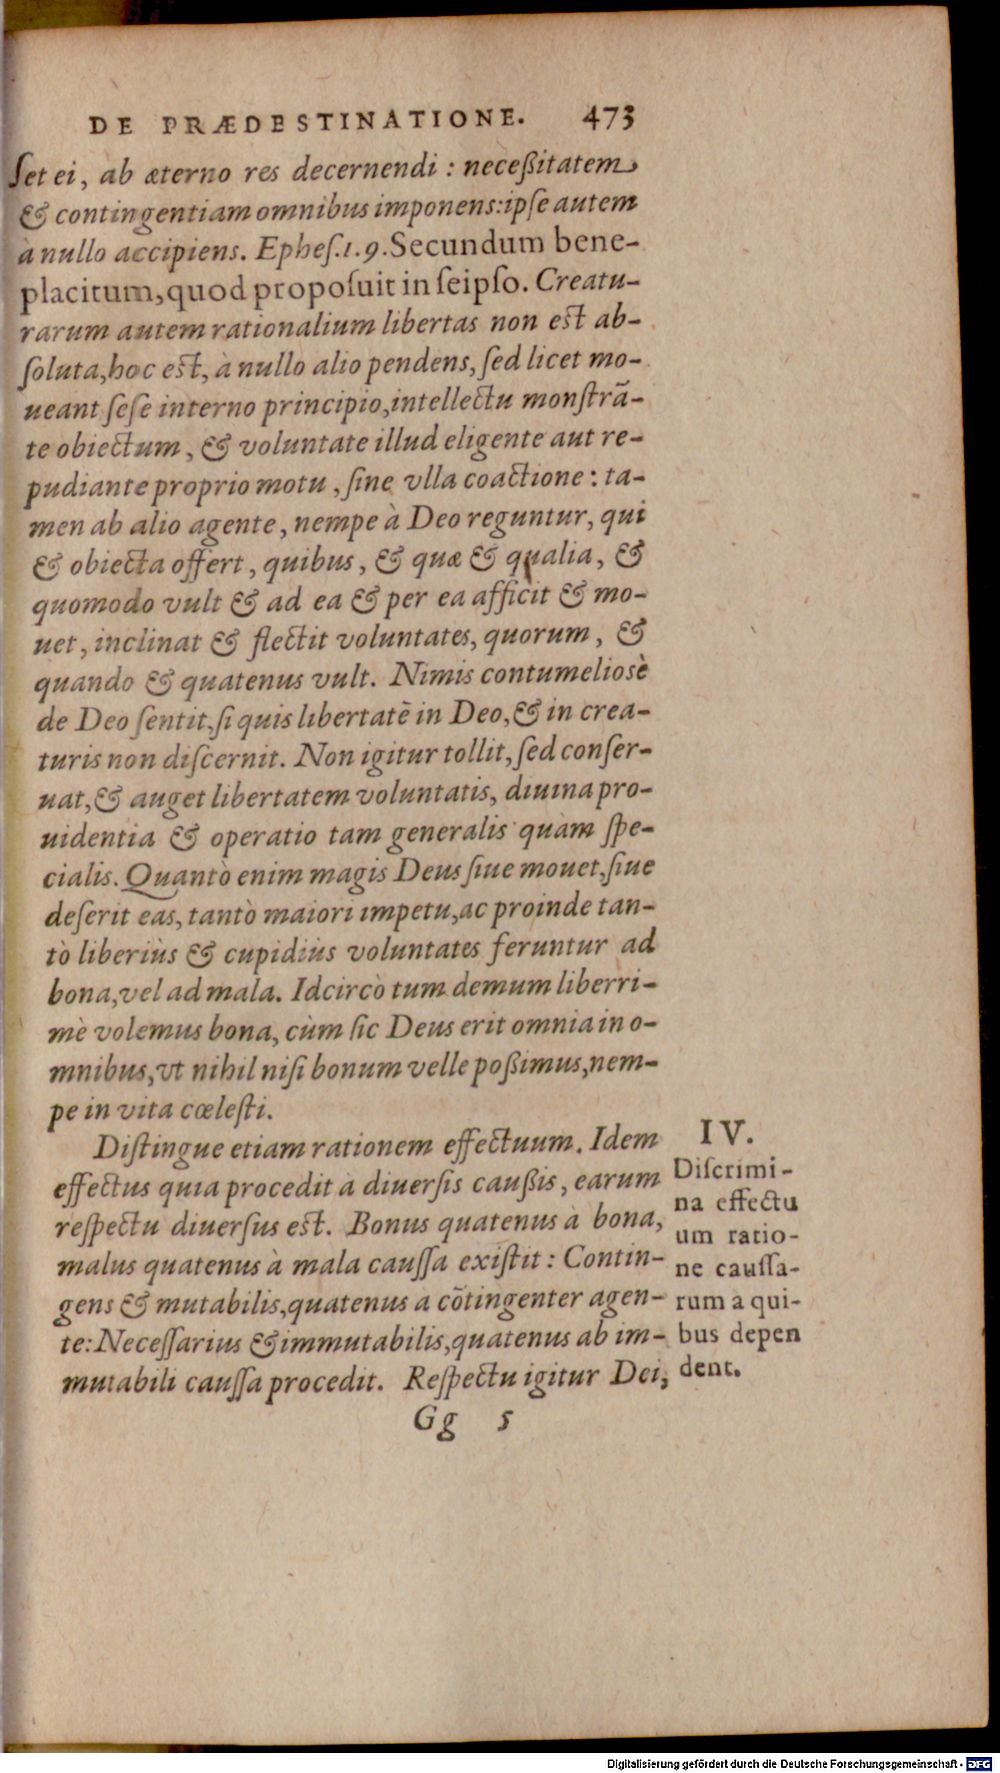 DE PRÆDESTINATIONE. 473
ſet ei, ab æterno res decernendi : neceßitatem
& contingentiam omnibus imponens:ipſe autem
à nullo accipiens. Epheſ.1.9.Secundum bene-
placitum,quod propoſuit in ſeipſo. Creatu-
rarum autem rationalium libertas non est ab-
ſoluta,hoc est, à nullo alio pendens, ſed licet mo-
ueant ſeſe interno principio,intellectu monſtrā-
te obiectum, & voluntate illud eligente aut re-
pudiante proprio motu, ſine vlla coactione : ta-
men ab alio agente, nempe à Deo reguntur, qui
& obiecta offert, quibus, & quæ & qualia, &
quomodo vult & ad ea & per ea afficit & mo-
uet, inclinat & flectit voluntates, quorum, &
quando & quatenus vult. Nimis contumelioſè
de Deo ſentit,ſi quis libertatē in Deo,& in crea-
turis non diſcernit. Non igitur tollit, ſed conſer-
uat,& auget libertatem voluntatis, diuina pro-
uidentia & operatio tam generalis quàm ſpe-
cialis. Quantò enim magis Deus ſiue mouet,ſiue
deſerit eas, tantò maiori impetu,ac proinde tan-
tò liberiùs & cupidiùs voluntates feruntur ad
bona,vel ad mala. Idcircò tum demum liberri-
mè volemus bona, cùm ſic Deus erit omnia in o-
mnibus,vt nihil niſi bonum velle poßimus,nem-
pe in vita cœleſti.
Diſtingue etiam rationem effectuum. Idem
effectus quia procedit a diuerſis cauſsis, earum
reſpectu diuerſus est. Bonus quatenus à bona,
malus quatenus à mala cauſſa exiſtit : Contin-
gens & mutabilis,quatenus a cōtingenter agen-
te: Neceſſarius & immutabilis,quatenus ab im-
mutabili cauſſa procedit. Reſpectu igitur Dei,
Gg 5
IV.
Diſcrimi-
na effectu
um ratio-
ne cauſſa-
rum a qui-
bus depen
dent.
Digitalisierung gefördert durch die Deutsche Forschungsgemeinschaft - DFG